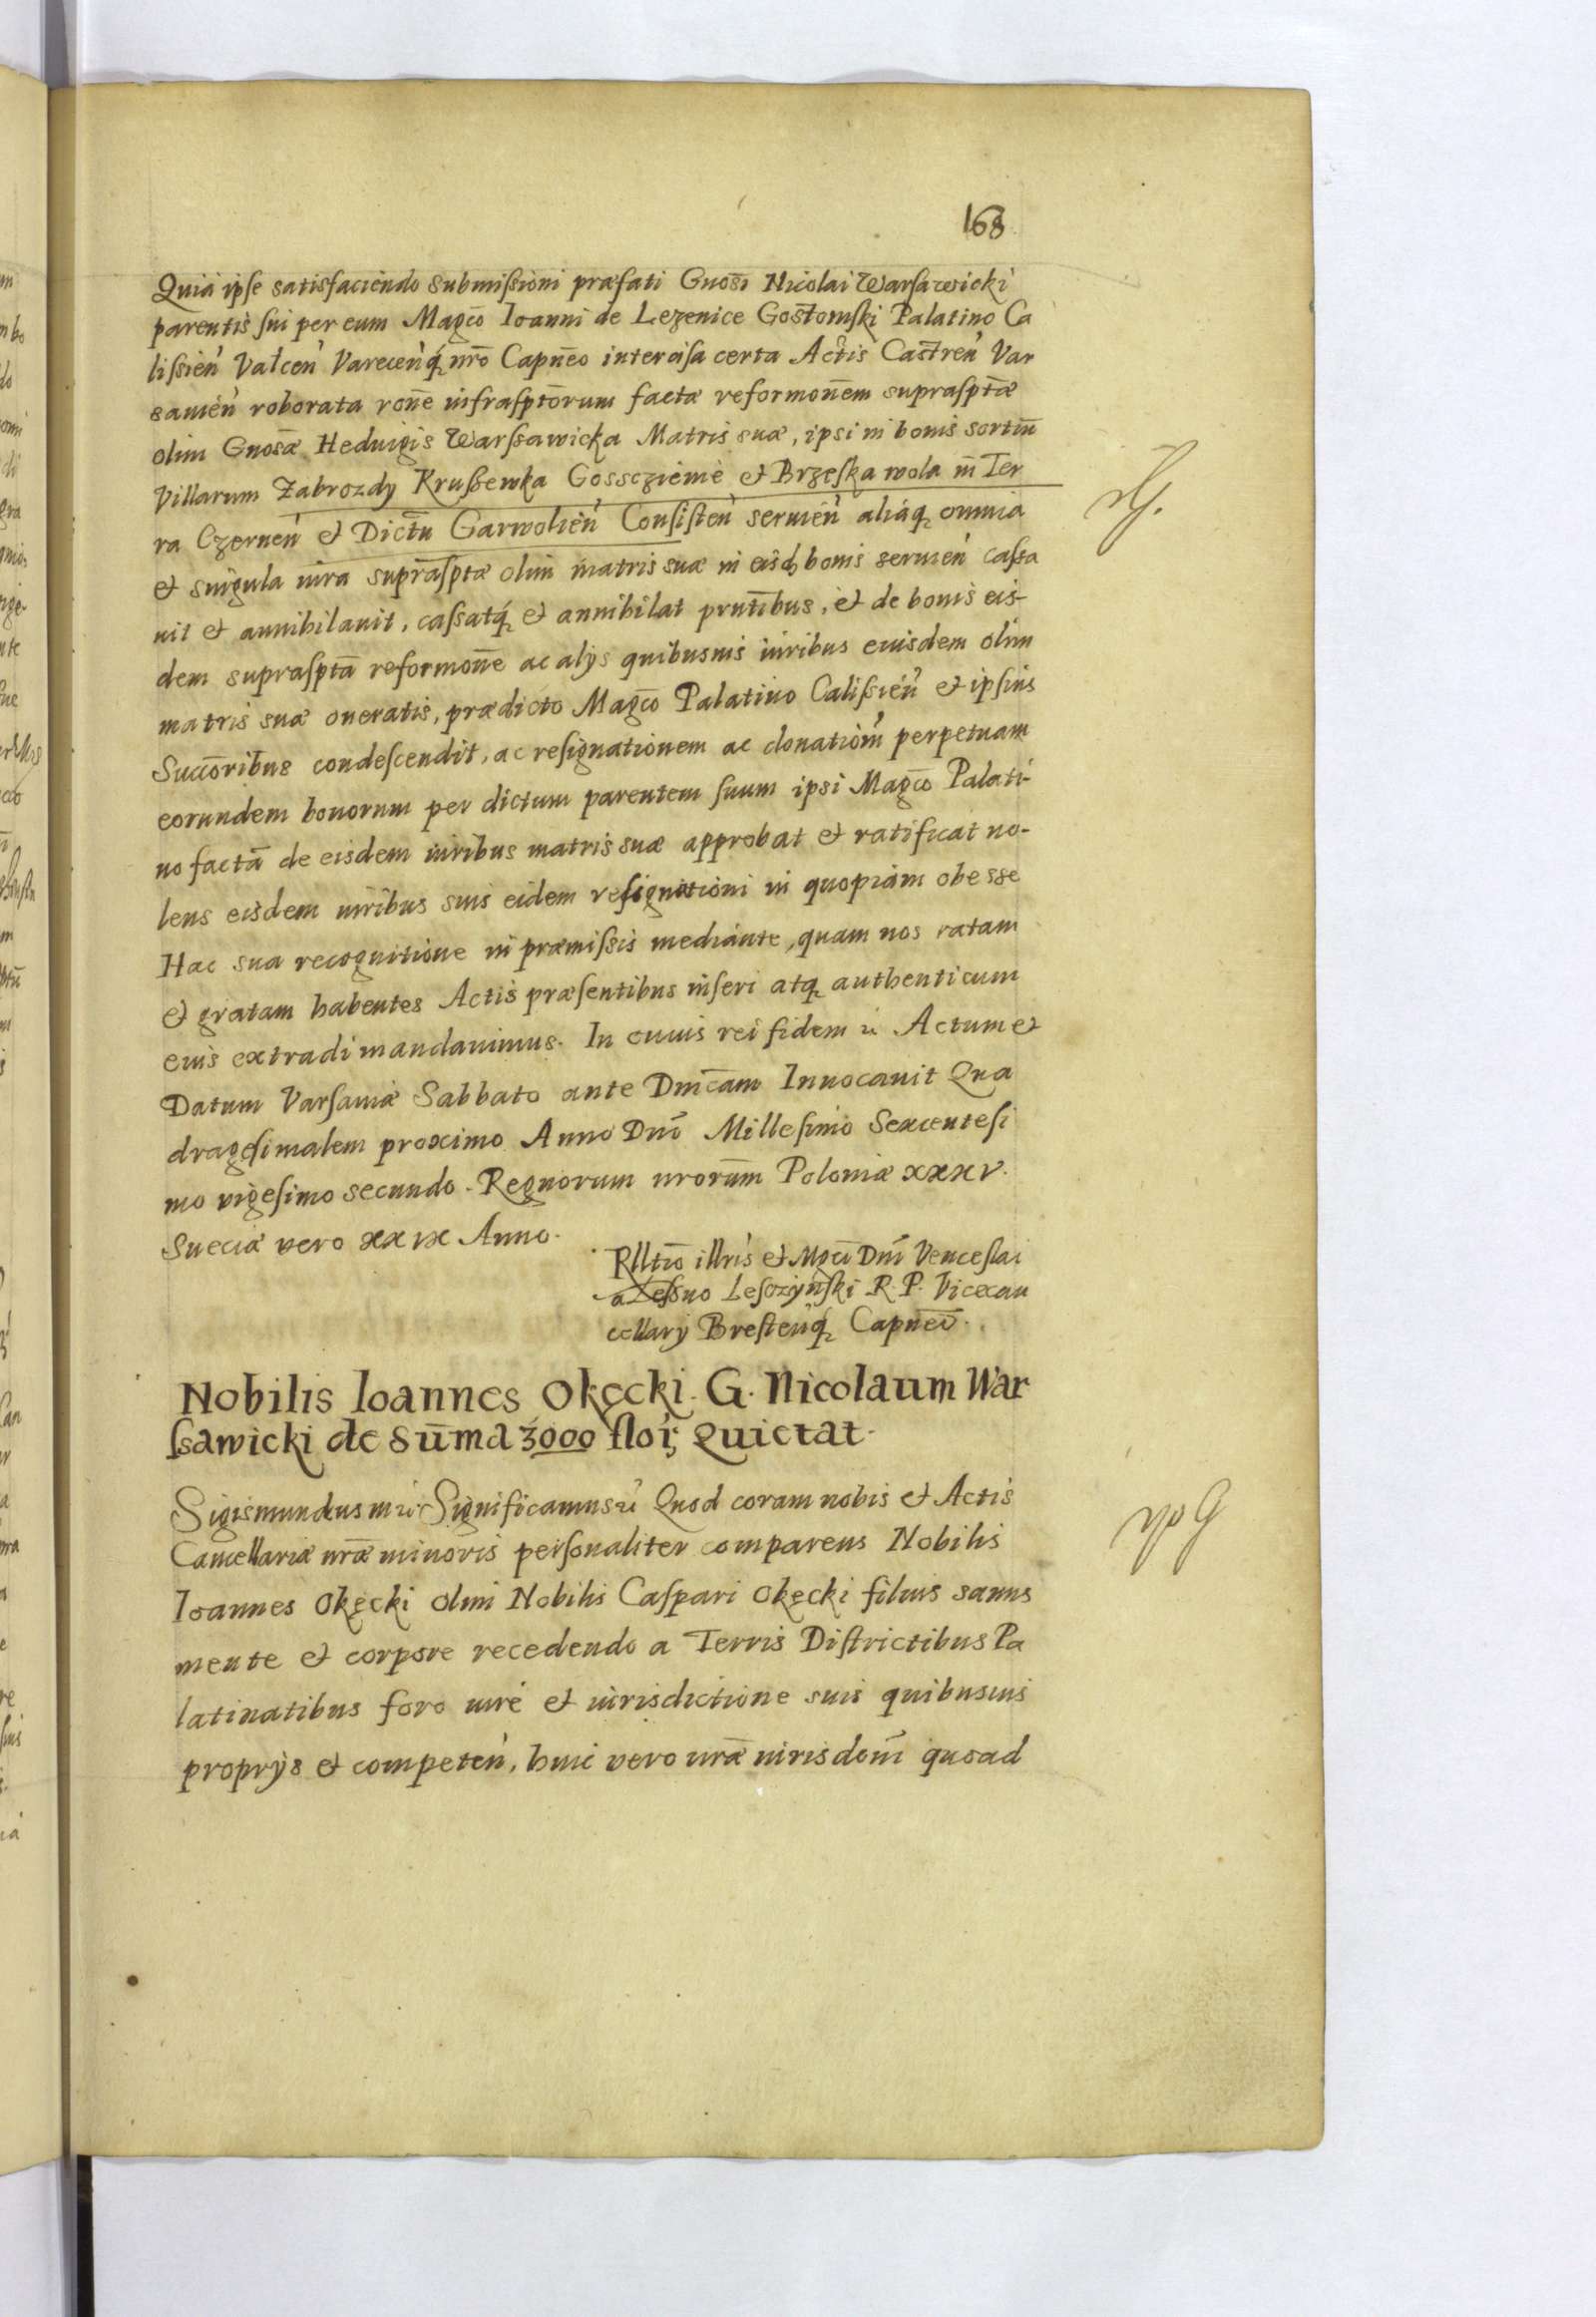 168
Quia ipse satisfaciendo submissioni præfati Gnosi Nicolai Warsawicki
parentis sui per eum Magco Ioanni de Lezenice Gostomski Palatino Ca
lissien̄ Valcen̄ Varecenq̨ nro Capneo intercisa certa Actis Castren̄ Var
savien̄ roborata rone infrasptorum factæ reformonem suprasptæ
olim Gnosæ Heduigis Warssawicka Matris suæ, ipsi in bonis sortiu
Villarum Zabrozdy Krussewka Gossczieme et Brzeska wola in Ter
ra Czernen̄ et Dictu Garwolien̄ Consisten̄ seruien̄ aliaq̨ omnia
et singula iura suprasptæ olim matris suæ in eisd bonis seruien̄ cassa
uit et annihilauit, cassatq̨ et annihilat prntibus, et de bonis eis-
dem suprasptā reformone ac alys quibusuis iuribus eiusdem olim
matris suæ oneratis, prædicto Magco Palatino Calissien̄ et ipsius
Succoribus condescendit, ac resignationem ac donationm perpetuam
eorundem bonorum per dictum parentem suum ipsi Magco Palati-
no factā de eisdem iuribus matris suæ approbat et ratificat no-
lens eisdem iuribus suis eidem resignationi in quopiam obesse
Hac sua recognitione in præmissis mediante, quam nos ratam
et gratam habentes Actis præsentibus inseri atq̨ authenticum
eius extradi mandauimus. In cuius rei fidem etc Actum et
Datum Varsauiæ Sabbato ante Dnicam Inuocauit Qua
dragesimalem proximo Anno Dni Millesimo Sexcentesi
mo vigesimo secundo. Regnorum nrorum Poloniæ xxxv.
Sueciæ vero xxix Anno.
Rlltio illris et Mgci Dni Venceslai
a Lessno Lesczynski R. P. Vicecan
cellary Brestenq̨ Capnei.
Nobilis Ioannes Okęcki. G. Nicolaum War
ssawicki de sūma 3000 flor; Quietat.
Sigismundus III etc Significamus etc Quod coram nobis et Actis
Cancellariæ nræ minoris personaliter comparens Nobilis
Ioannes Okęcki olim Nobilis Caspari Okęcki filius sanus
mente et corpore recedendo a Terris Districtibus Pa
latinatibus foro iure et iurisdictione suis quibusuis
proprys et competen̄, huic vero nræ iurisdoni quoad